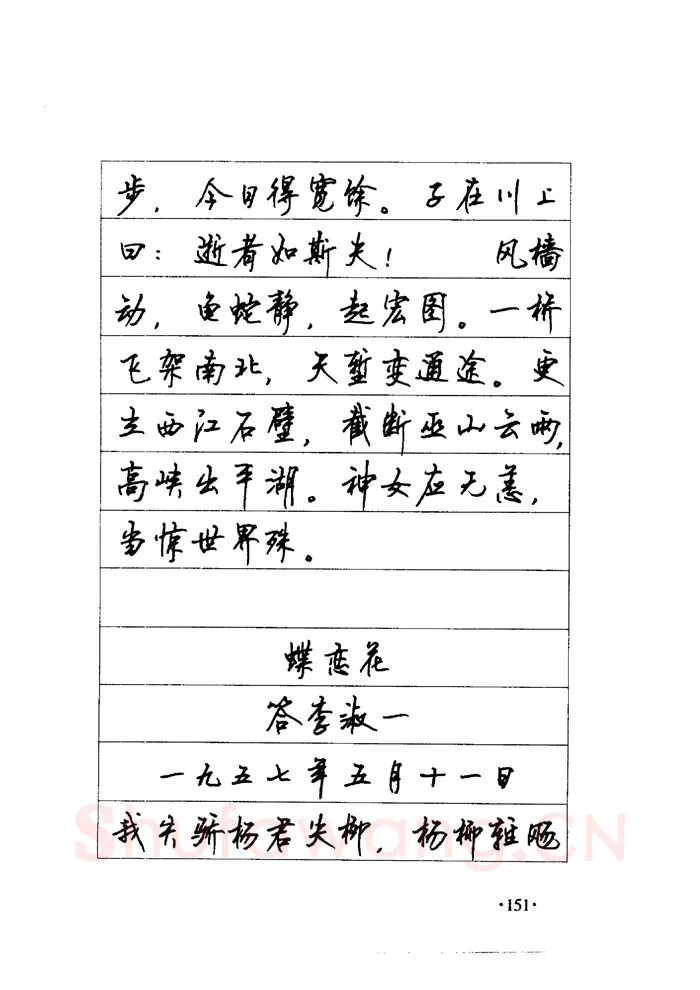 步，今日得宽馀。子在川上
曰：逝者如斯夫！ 风樯
动，龟蛇静，起宏图。一桥
飞架南北，天堑变通途。更
立西江石壁，截断巫山云雨，
高峡出平湖。神女应无恙，
当惊世界殊。
蝶恋花
答李淑一
一九五七年五月十一日
我失骄杨君失柳，杨柳轻飏
Shufawang.CN
·151·